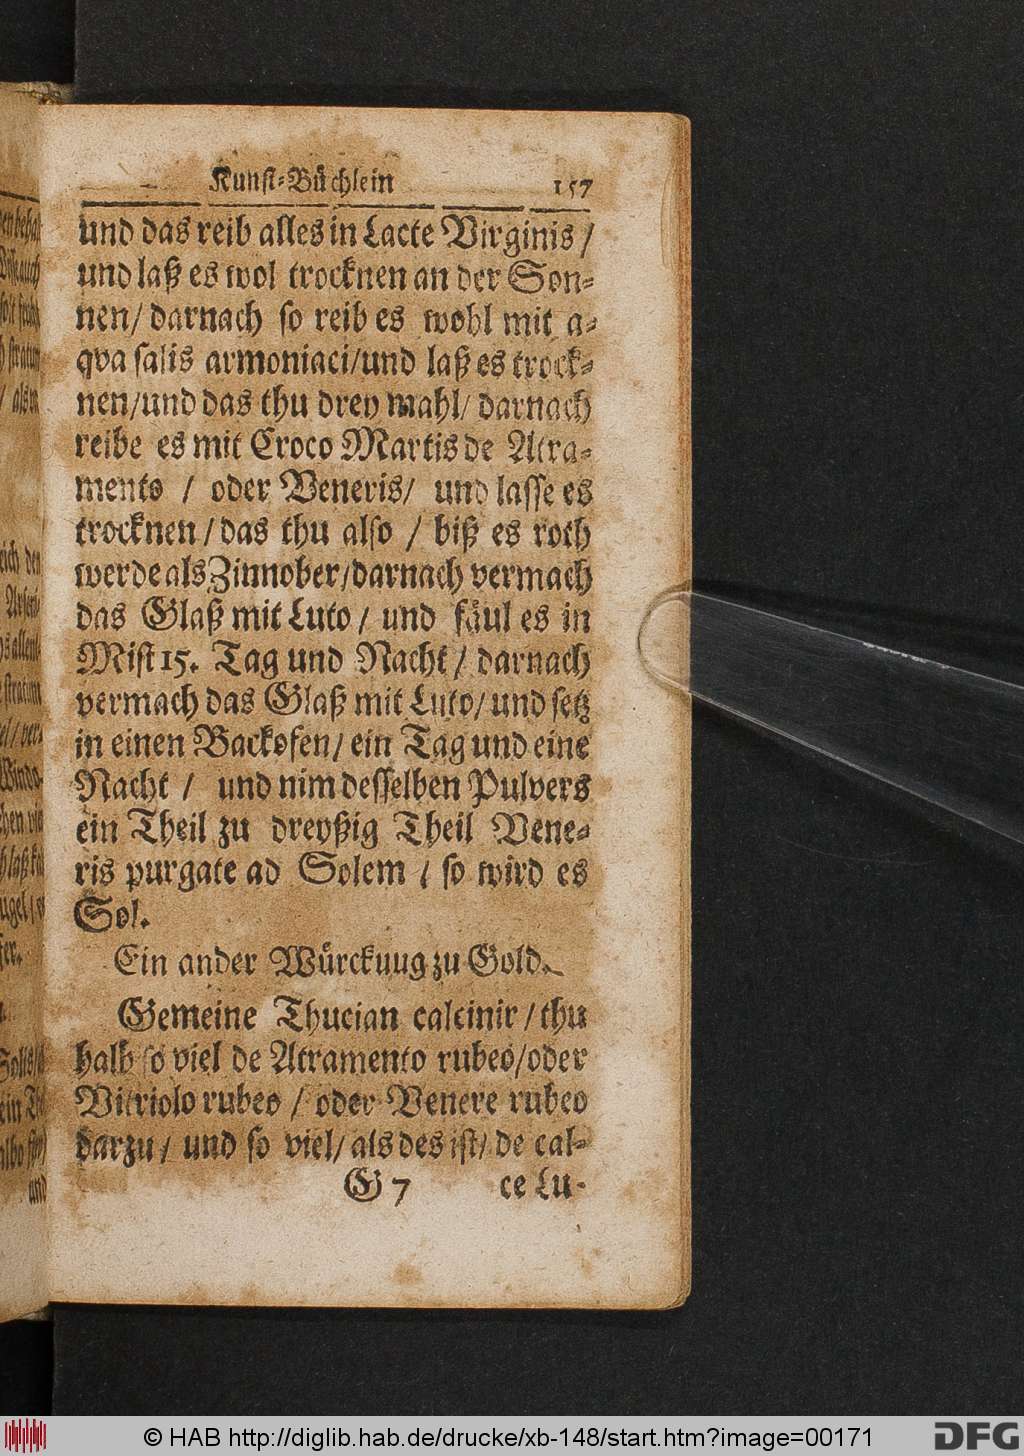 Kunst-Büchlein 157
und das reib alles in Lacte Virginis /
und laß es wol trocknen an der Son-
nen/ darnach so reib es wohl mit a-
qva salis armoniaci/und laß es trock-
nen/und das thu drey mahl/ darnach
reibe es mit Croco Martis de Atra-
mento / oder Veneris/ und lasse es
trocknen / das thu also / biß es roth
werde als Zinnober/darnach vermach
das Glaß mit Luto / und fäul es in
Mist 15. Tag und Nacht / darnach
vermach das Glaß mit Luto/ und setz
in einen Backofen/ ein Tag und eine
Nacht / und nim desselben Pulvers
ein Theil zu dreyßig Theil Vene-
ris purgate ad Solem / so wird es
Sol.
Ein ander Würckuug zu Gold.
Gemeine Thucian calcinir / thu
halb so viel de Atramento rubeo/oder
Vitriolo rubeo / oder Venere rubeo
darzu / und so viel/ als des ist/ de cal-
G 7 ce Lu-
© HAB http://diglib.hab.de/drucke/xb-148/start.htm?image=00171
DFG